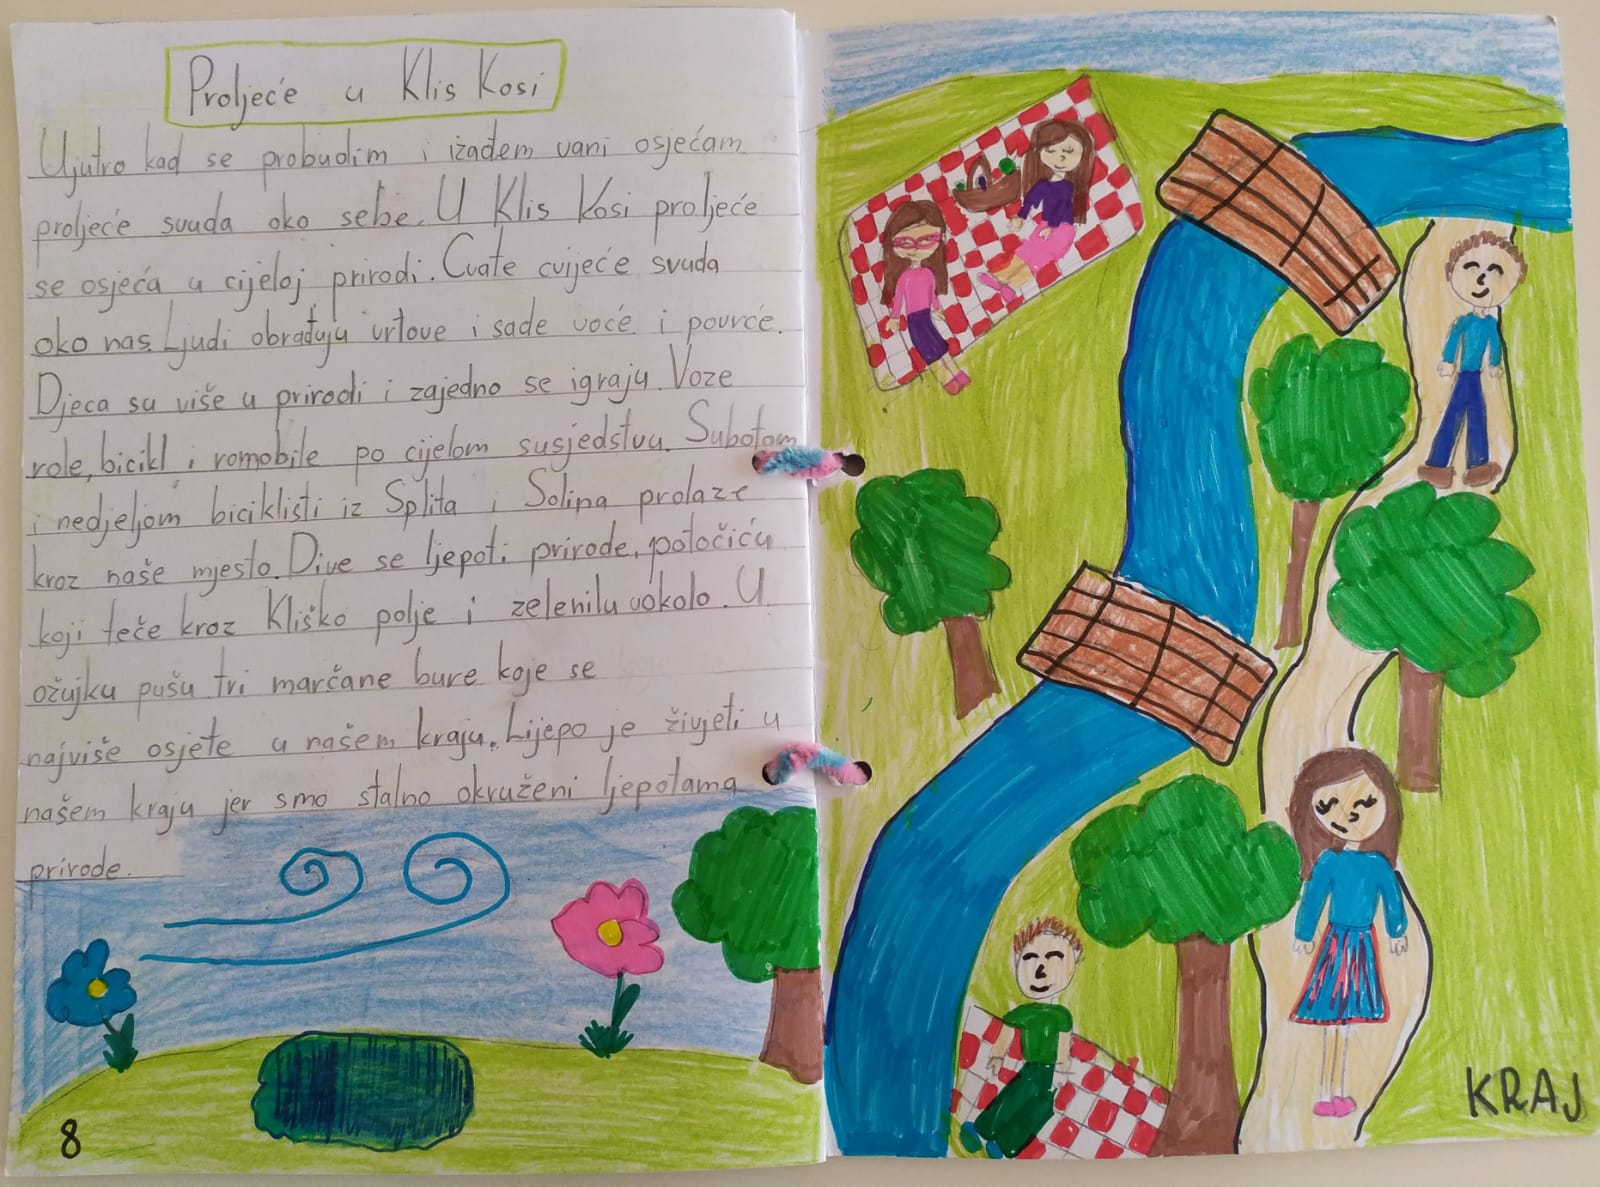 Proljeće u Klis Kosi
Ujutro kad se probudim i izađem vani osjećam
proljeće svuda oko sebe. U Klis Kosi proljeće
se osjeća u cijeloj prirodi. Cvate cvijeće svuda
oko nas. Ljudi obrađuju vrtove i sade voće i povrće.
Djeca su više u prirodi i zajedno se igraju. Voze
role, bicikl i romobile po cijelom susjedstvu. Subotom
i nedjeljom biciklisti iz Splita i Solina prolaze
kroz naše mjesto. Dive se ljepoti prirode, potočiću
koji teče kroz Kliško polje i zelenilu uokolo. U
ožujku pušu tri marčane bure koje se
najviše osjete u našem kraju. Lijepo je živjeti u
našem kraju jer smo stalno okruženi ljepotama
prirode.
8
KRAJ